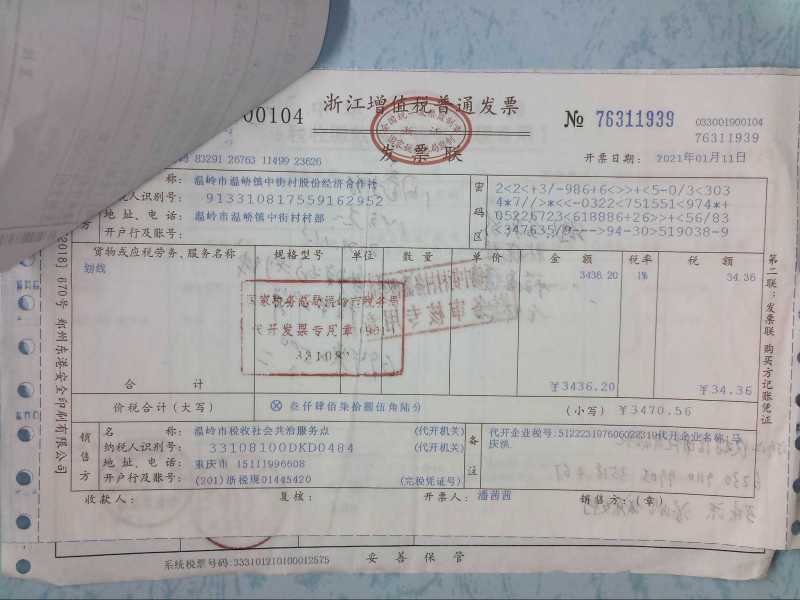 00104
浙江增值税普通发票
№ 76311939
033001900104
76311939
全国统一发票监制章
浙江
发票联
开票日期: 2021年01月11日
83291 26763 11499 23626
称: 温岭市温峤镇中街村股份经济合作社
纳税人识别号: 913310817559162952
地址、电话: 温岭市温峤镇中街村村部
开户行及账号:
方
密码区
2<2<+3/-986+6<>>+<5-0/3<303
4*7//>*<<-0322<751551<974*+
05226723<618886+26>>+<56/83
货物或应税劳务、服务名称 规格型号 单位 数量 单价 金额 税率 税额
划线 3436.20 1% 34.36
国家税务总局温岭市税务局
代开发票专用章
合计 ￥3436.20 ￥34.36
价税合计(大写) ⊗ 叁仟肆佰柒拾圆伍角陆分 (小写) ￥3470.56
销售方
名称: 温岭市税收社会共治服务点 (代开机关)
纳税人识别号: 33108100DKD0484 (代开机关)
地址、电话: 重庆市 15111996608
开户行及账号: (201)浙税现01445420 (完税凭证号)
备注
代开企业税号:512223197606022319代开企业名称:马
庆洪
收款人: 复核: 开票人: 潘茜茜 销售方:(章)
第二联:发票联 购买方记账凭证
[2018] 670号 郑州东港安全印刷有限公司
系统税票号码:333101210100012575
妥善保管